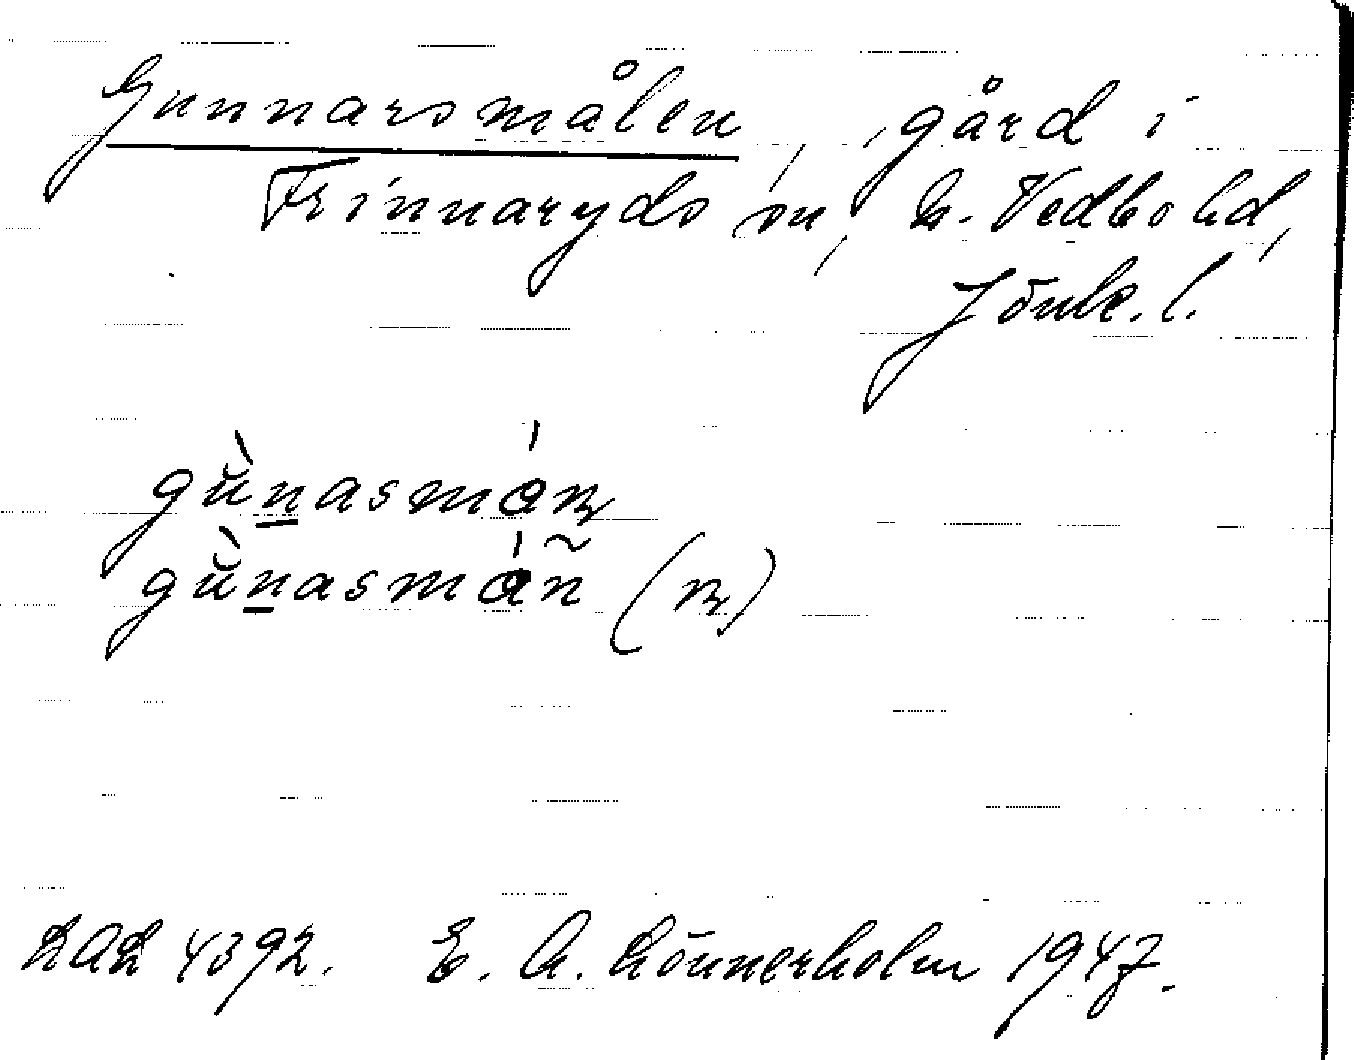 Gunnarsmålen, gård i
Frinnaryds sn, N. Vedbo hd,
Jönk. l.
gùnasmán
gùnasmáñ (n)
LAL 4392. E. A. Lönnerholm 1947.